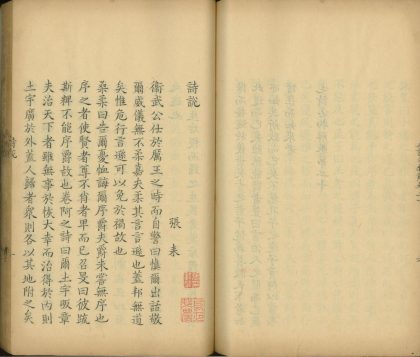 詩說
張耒
衛武公仕於厲王之時而自警曰慎爾出話敬
爾威儀無不柔嘉夫柔其言言遜也蓋邦無道
矣惟危行言遜可以免於禍故也
桑柔曰告爾憂恤誨爾序爵夫爵未嘗無序也
序之者使賢者尊不肖者卑而已召旻曰彼疏
斯粺不能序爵故也卷阿之詩曰爾土宇昄章
夫治天下者雖無事於恢大幸而治得於內則
土宇廣於外蓋人歸者衆則各以其地附之矣
詩說